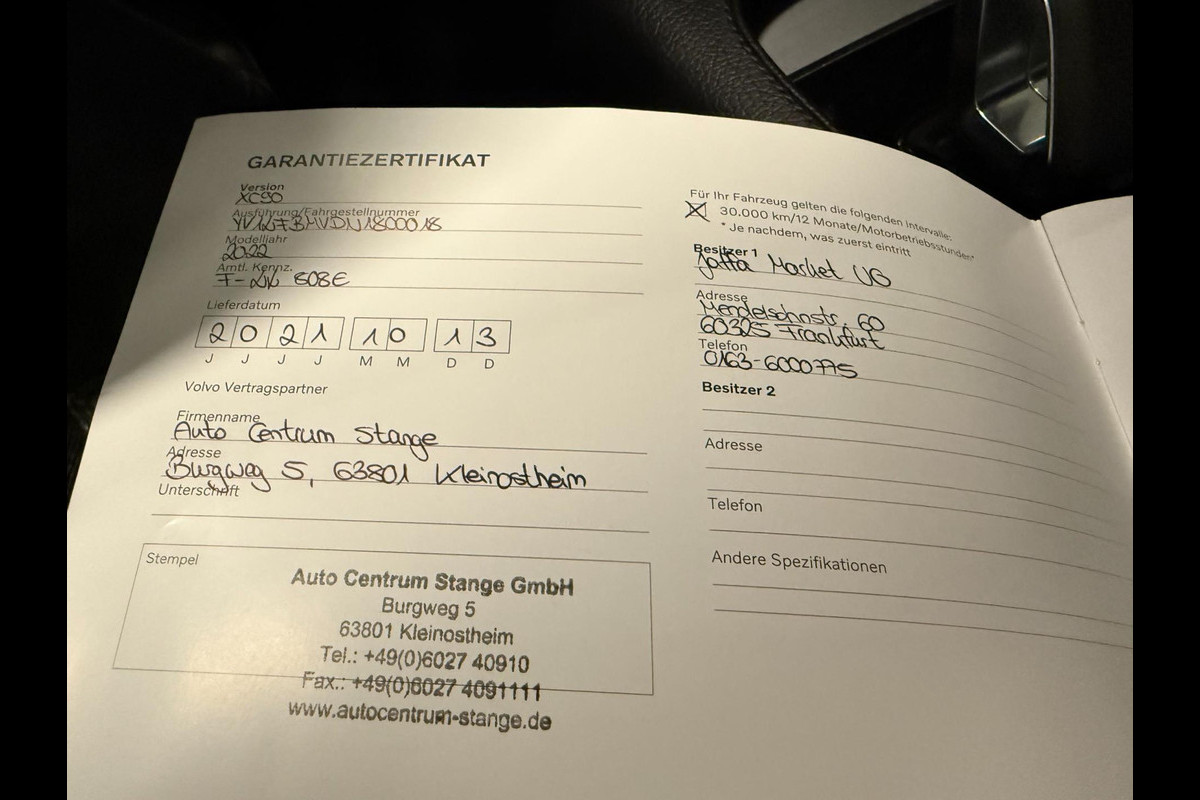 GARANTIEZERTIFIKAT
Version
XC90
Ausführung/Fahrgestellnummer
Modelljahr
2022
Amtl. Kennz.
Lieferdatum
2 0 2 1 1 0 1 3
J J J J M M D D
Volvo Vertragspartner
Firmenname
Auto Centrum Stange
Adresse
Burgweg 5, 63801 Kleinostheim
Unterschrift
Stempel
Auto Centrum Stange GmbH
Burgweg 5
63801 Kleinostheim
Tel.: +49(0)6027 40910
Fax.: +49(0)6027 4091111
www.autocentrum-stange.de
Für Ihr Fahrzeug gelten die folgenden Intervalle:
30.000 km/12 Monate/Motorbetriebsstunden*
* Je nachdem, was zuerst eintritt
Besitzer 1
Market UG
Adresse
60
60325 Frankfurt
Telefon
0163-6000775
Besitzer 2
Adresse
Telefon
Andere Spezifikationen